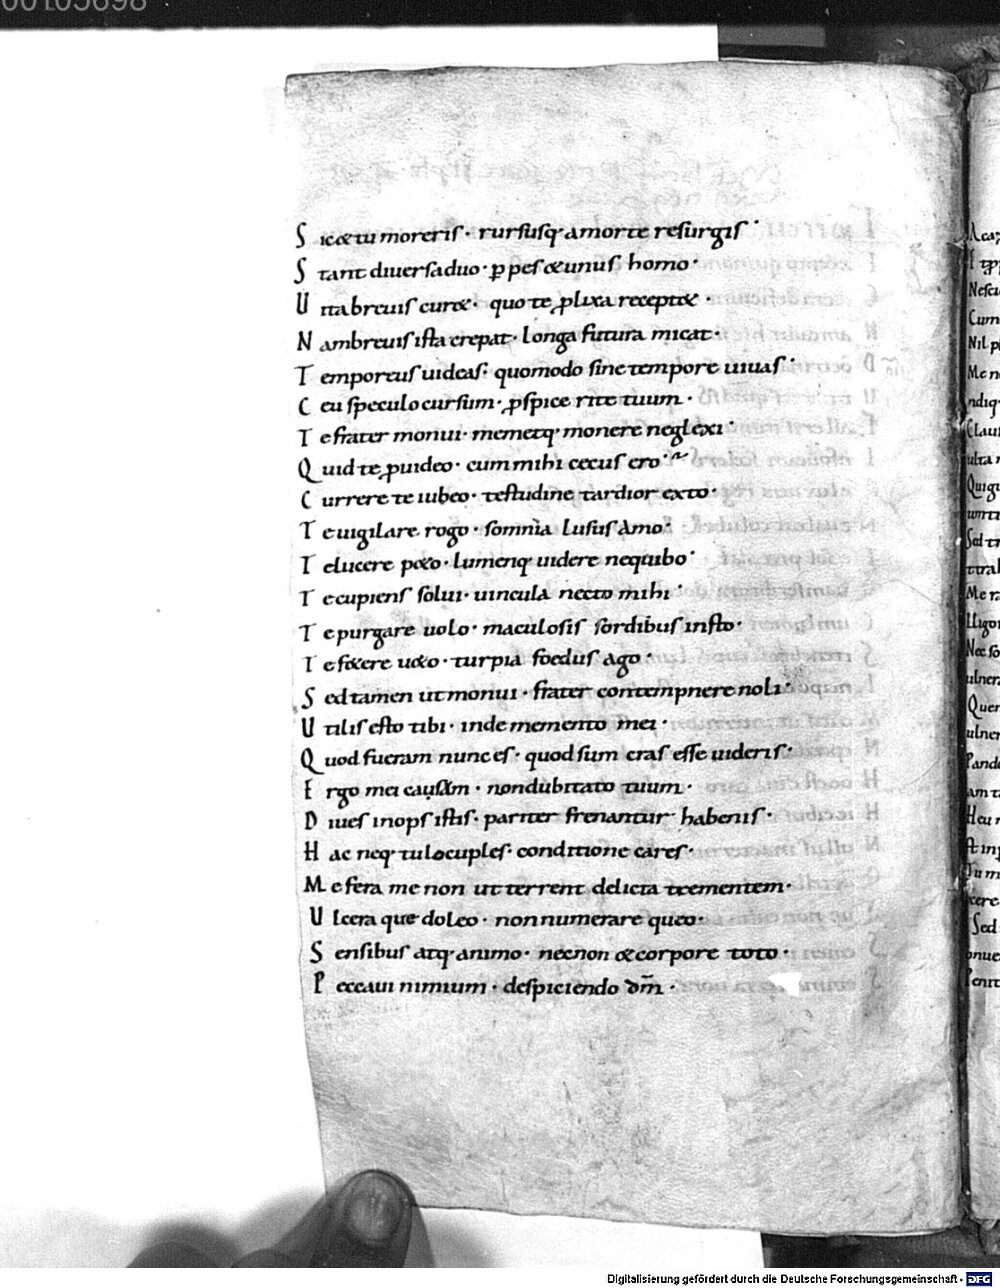 00105698
S ic & tu moreris · rursusq; a morte resurgis ·
S tant diuersa duo · p pes & unus homo ·
U ita breuis cur& · quo te plixa recept& ·
N am breuis ista crepat · longa futura micat ·
T empore us uideas · quomodo sine tempore uiuas ·
C eu speculo cursum · pspice rite tuum ·
T e frater monui · memetq; monere neglexi ·
Q uid te puideo · cum mihi cecus ero ·
C urrere te iubeo · testudine tardior exto ·
T e uigilare rogo · somnia lusus amo ·
T e lucere p&o · lumenq; uidere nequibo ·
T e cupiens solui · uincula necto mihi ·
T e purgare uolo · maculosis sordibus insto ·
T e f&ere u&o · turpia foedus ago ·
S ed tamen ut monui · frater contempnere noli ·
U tilis esto tibi · inde memento mei ·
Q uod fueram nunc es · quod sum cras esse uideris ·
E rgo mei causam · non dubitato tuum ·
D iues inops istis · pariter frenantur habenis ·
H ac neq; tu locuples · conditione cares ·
M e fera me non ut terrent delicta trementem ·
U lcera que doleo · non numerare queo ·
S ensibus atq; animo · necnon & corpore toto ·
P eccaui nimium · despiciendo dm̅ ·
Digitalisierung gefördert durch die Deutsche Forschungsgemeinschaft - DFG